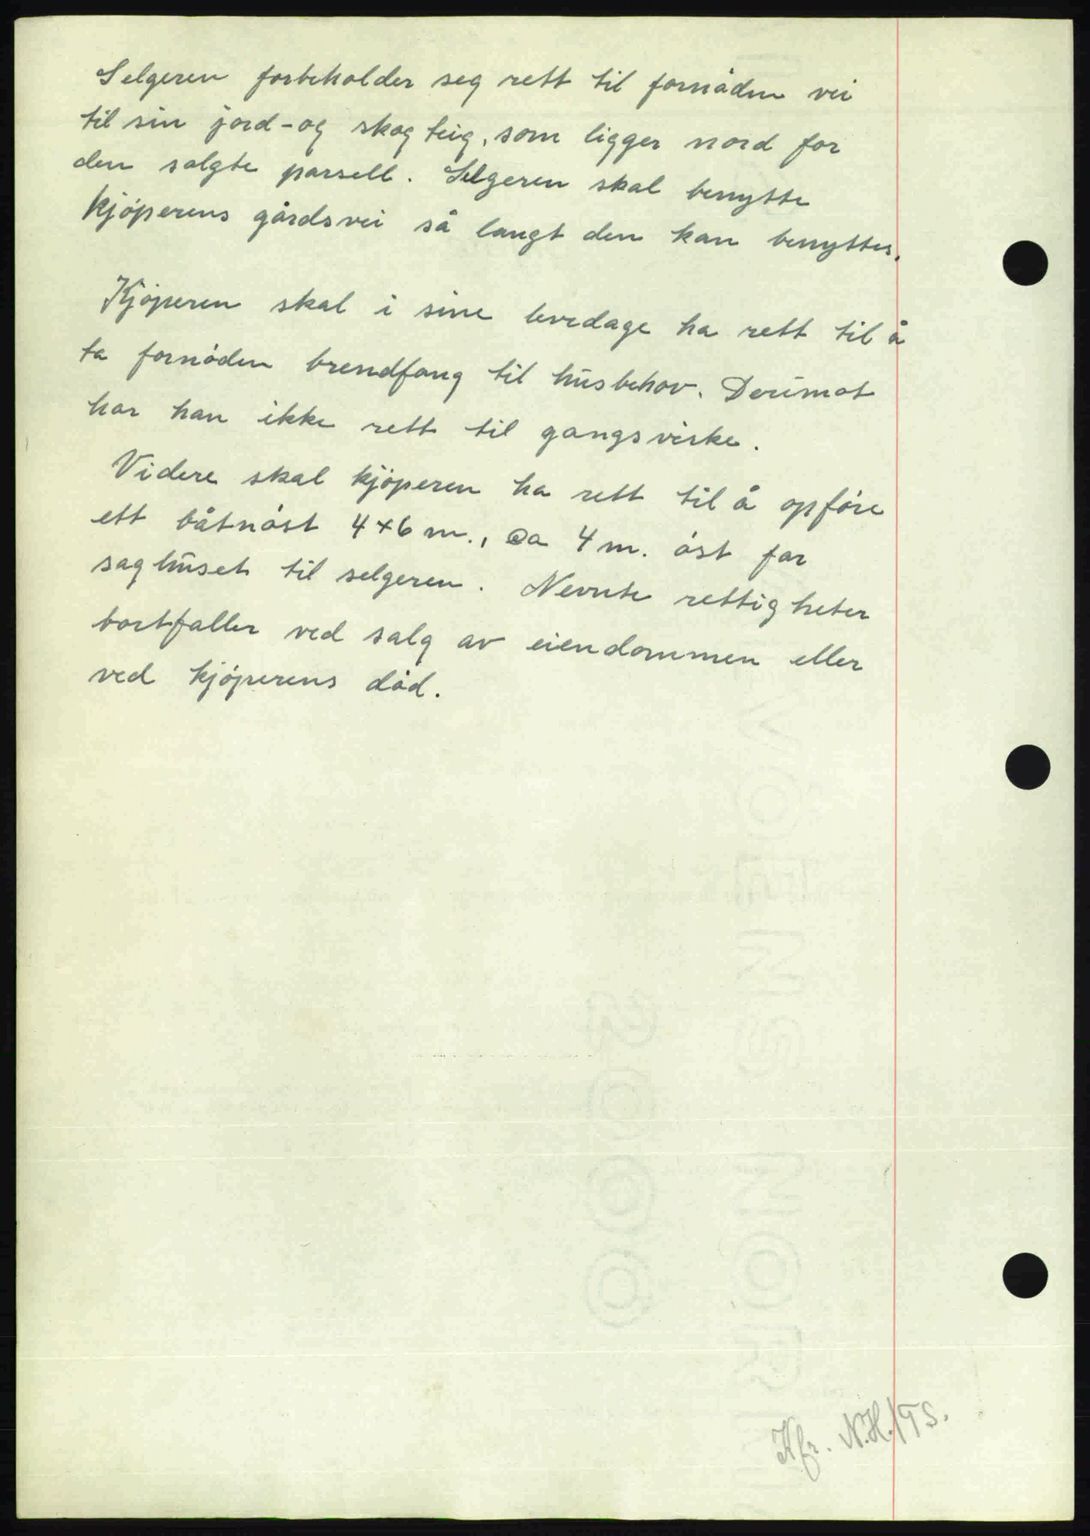 Selgeren forbeholder seg rett til fornöden vei
til sin jord-og skog teig, som ligger nord for
den solgte parsell. Selgeren skal benytte
kjöperens gårdsvei så langt den kan benyttes.
Kjöperen skal i sine levedage ha rett til å
ta fornöden brendfang til husbehov. Derimot
har han ikke rett til gangsvirke.
Videre skal kjöperen ha rett til å opföre
ett båtnöst 4×6 m., ca 4 m. öst for
saghuset til selgeren. Nevnte rettigheter
bortfaller ved salg av eiendommen eller
ved kjöperens död.
Kfr. N.H./TS.